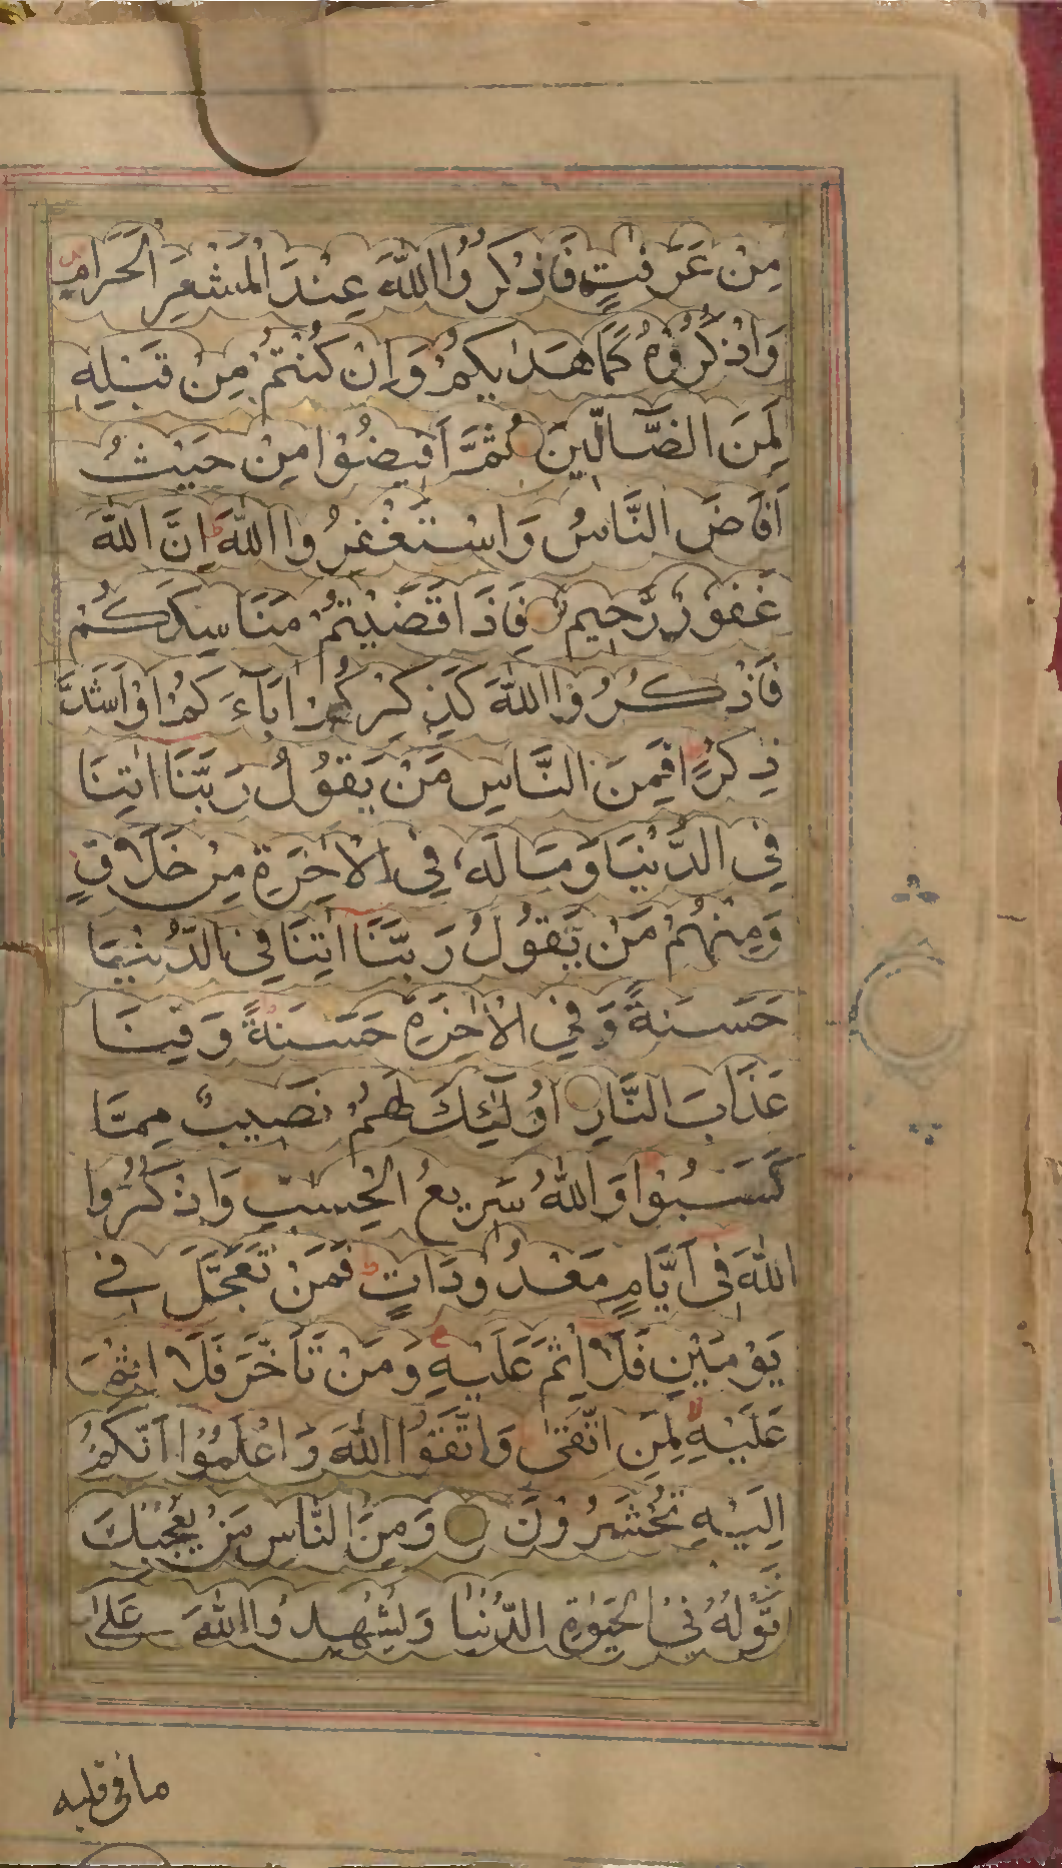 مِنْ عَرَفٰتٍ فَاذْكُرُوا اللّٰهَ عِنْدَ الْمَشْعَرِ الْحَرَامِ
وَاذْكُرُوْهُ كَمَا هَدٰىكُمْ وَاِنْ كُنْتُمْ مِنْ قَبْلِهٖ
لَمِنَ الضَّآلِّيْنَ ثُمَّ اَفِيْضُوْا مِنْ حَيْثُ
اَفَاضَ النَّاسُ وَاسْتَغْفِرُوا اللّٰهَ ط اِنَّ اللّٰهَ
غَفُوْرٌ رَّحِيْمٌ فَاِذَا قَضَيْتُمْ مَنَاسِكَكُمْ
فَاذْكُرُوا اللّٰهَ كَذِكْرِكُمْ اٰبَآءَكُمْ اَوْ اَشَدَّ
ذِكْرًا فَمِنَ النَّاسِ مَنْ يَقُوْلُ رَبَّنَا اٰتِنَا
فِي الدُّنْيَا وَمَا لَهٗ فِي الْاٰخِرَةِ مِنْ خَلَاقٍ
وَمِنْهُمْ مَنْ يَّقُوْلُ رَبَّنَا اٰتِنَا فِي الدُّنْيَا
حَسَنَةً وَّفِي الْاٰخِرَةِ حَسَنَةً وَّقِنَا
عَذَابَ النَّارِ اُولٰٓئِكَ لَهُمْ نَصِيْبٌ مِمَّا
كَسَبُوْا وَاللّٰهُ سَرِيْعُ الْحِسٰبِ وَاذْكُرُوا
اللّٰهَ فِيْ اَيَّامٍ مَعْدُوْدَاتٍ ط فَمَنْ تَعَجَّلَ فِيْ
يَوْمَيْنِ فَلَا اِثْمَ عَلَيْهِ وَمَنْ تَاَخَّرَ فَلَا اِثْمَ
عَلَيْهِ لا لِمَنِ اتَّقٰى وَاتَّقُوا اللّٰهَ وَاعْلَمُوْا اَنَّكُمْ
اِلَيْهِ تُحْشَرُوْنَ وَمِنَ النَّاسِ مَنْ يُّعْجِبُكَ
قَوْلُهٗ فِي الْحَيٰوةِ الدُّنْيَا وَيُشْهِدُ اللّٰهَ عَلٰى
ما في قلبه